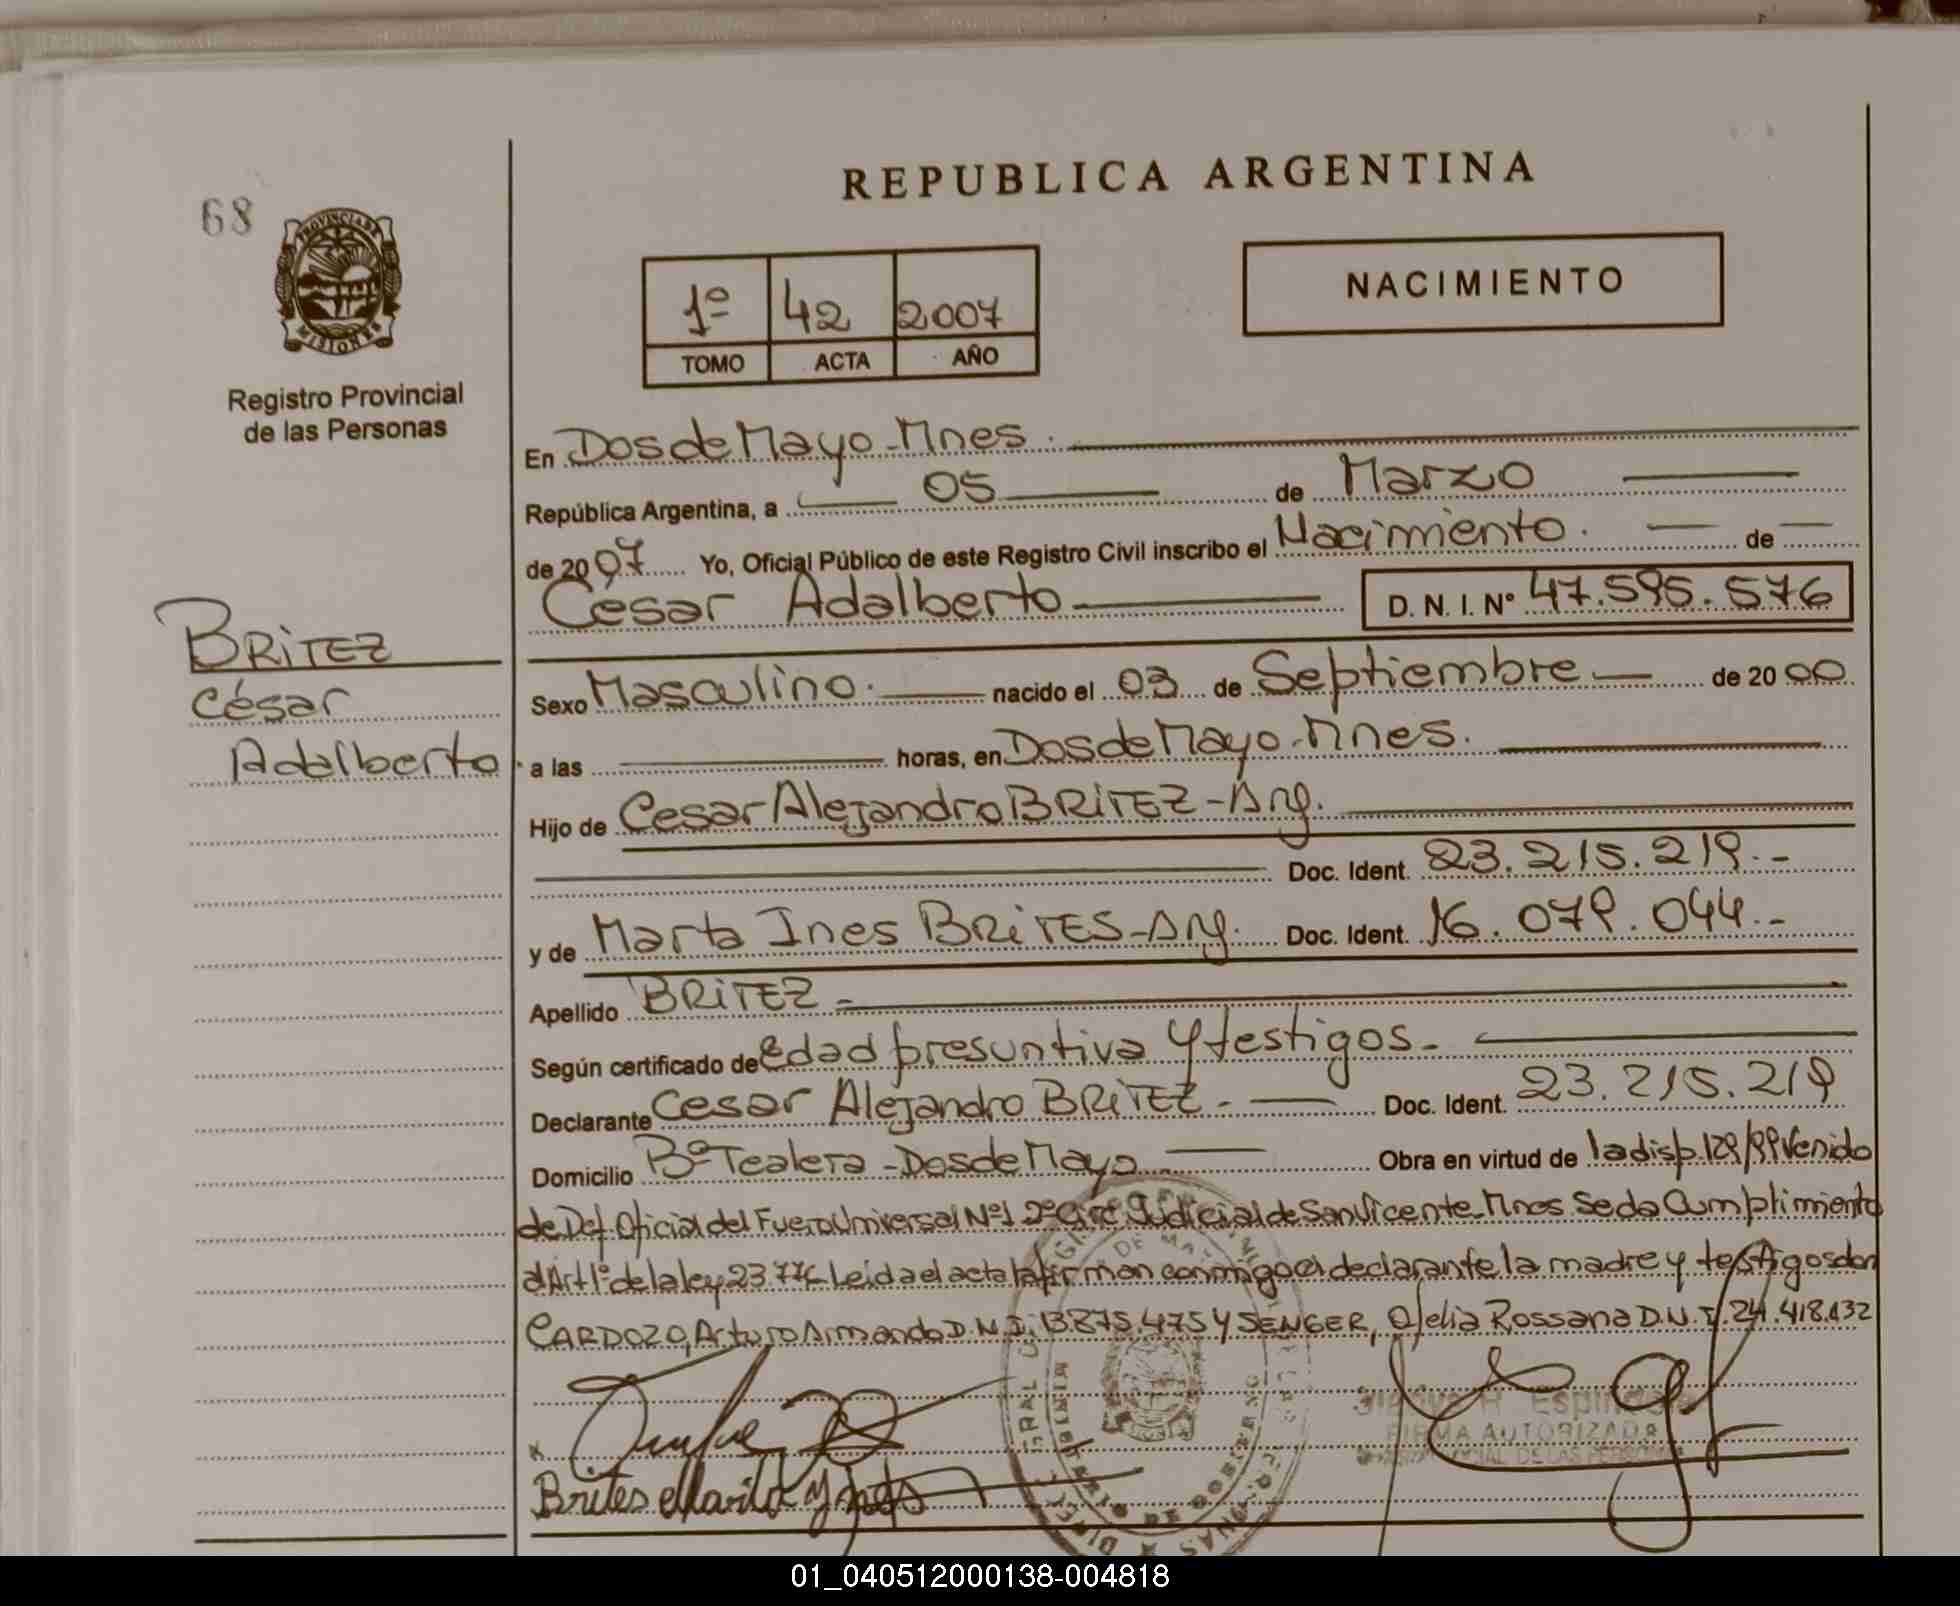 REPUBLICA ARGENTINA
68
PROVINCIA DE
MISIONES
Registro Provincial
de las Personas
1º 42 2007
TOMO ACTA AÑO
NACIMIENTO
En Dos de Mayo - Mnes.
República Argentina, a 05 de Marzo
de 2007 Yo, Oficial Público de este Registro Civil inscribo el Nacimiento. de
César Adalberto D. N. I. Nº 47.595.576
BRITEZ
César
Adalberto
Sexo Masculino. nacido el 03 de Septiembre de 2000
a las horas, en Dos de Mayo - Mnes.
Hijo de Cesar Alejandro BRITEZ - Arg.
Doc. Ident. 23.215.219.-
y de Marta Ines BRITES - Arg. Doc. Ident. 16.079.044.-
Apellido BRITEZ -
Según certificado de edad presuntiva y testigos.
Declarante Cesar Alejandro BRITEZ - Doc. Ident. 23.215.219
Domicilio Bº Tealera - Dos de Mayo Obra en virtud de la disp. 129/99 Venido
de Def. Oficial del Fuero Universal Nº1 2º Circ. Judicial de San Vicente - Mnes Se da Cumplimiento
al Art 1º de la ley 23.776 Leida el acta la firman conmigo el declarante la madre y testigos don
CARDOZO, Arturo Armando D.N.I. 13875.475 y SENGER, Ofelia Rossana D.N.I. 24.418.132
Espindola
FIRMA AUTORIZADA
DE LAS PERSONAS
Brites Marta Ynes
01_040512000138-004818